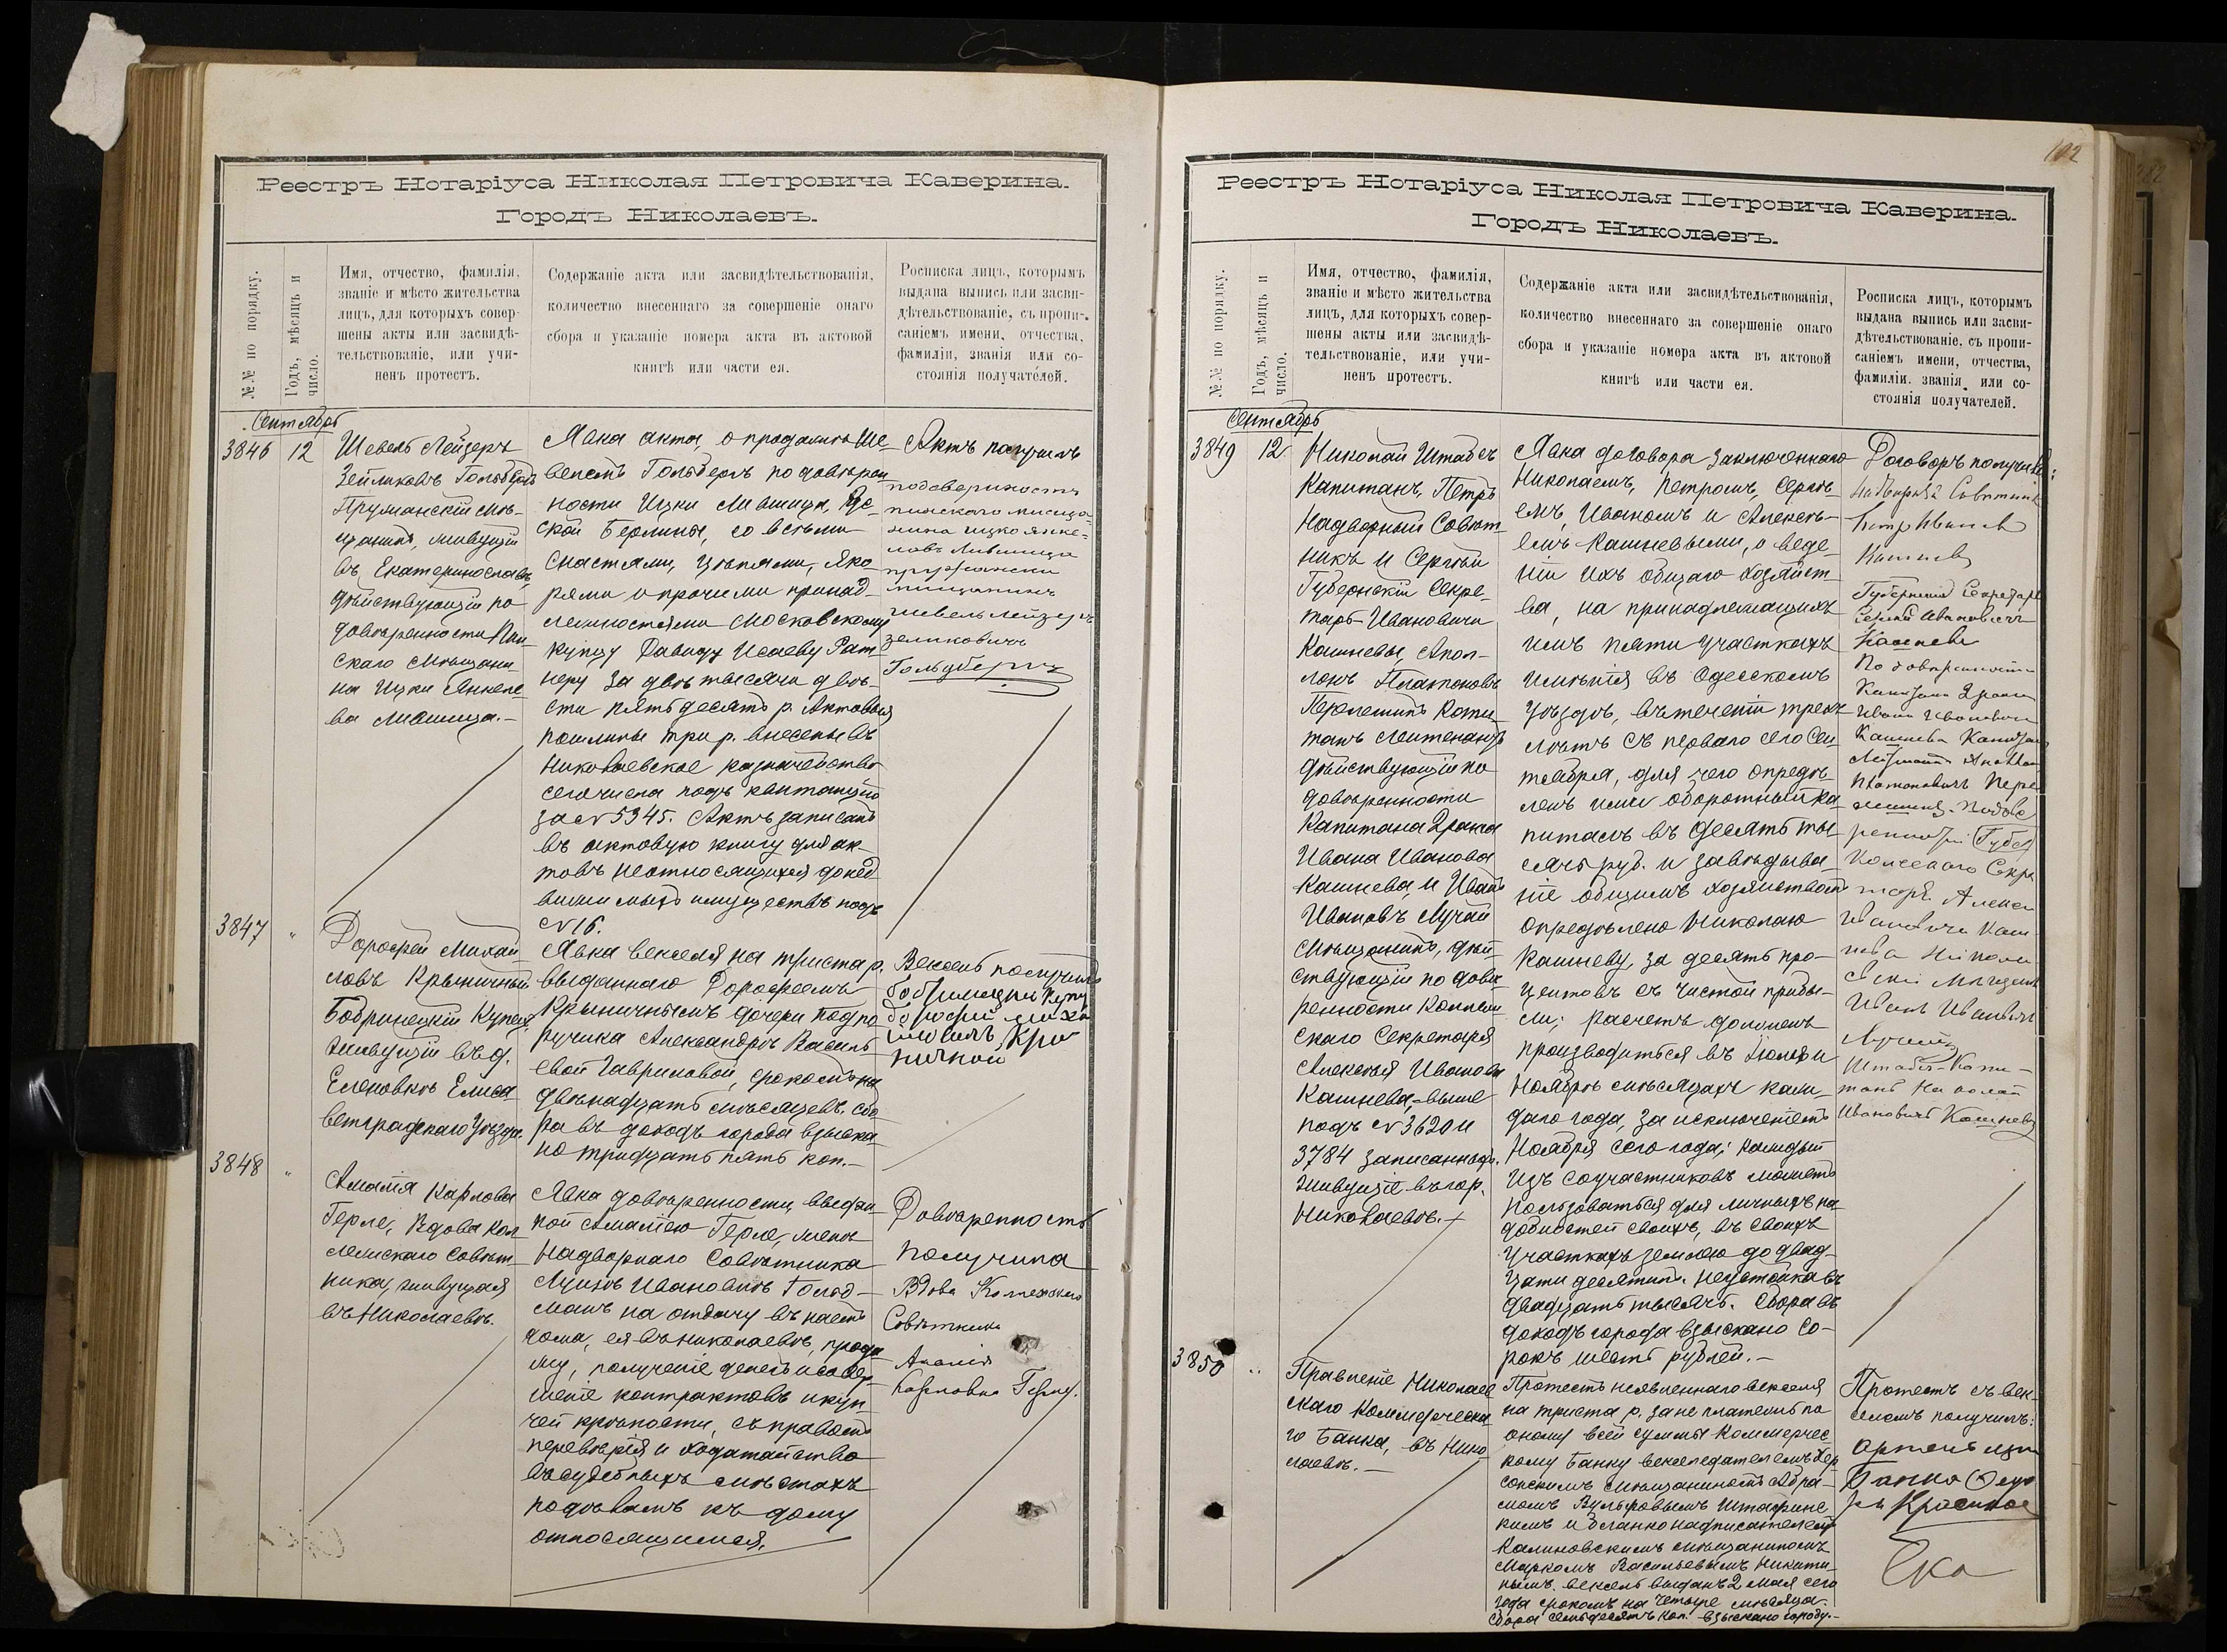 Реестръ Нотаріуса Николая Петровича Каверина.
Городъ Николаевъ.
№№ по порядку.
Годъ, мѣсяцъ и число.
Имя, отчество, фамилія,
званіе и мѣсто жительства
лицъ, для которыхъ совер-
шены акты или засвидѣ-
тельствованіе, или учи-
ненъ протестъ.
Содержаніе акта или засвидѣтельствованія,
количество внесеннаго за совершеніе онаго
сбора и указаніе номера акта въ актовой
книгѣ или части ея.
Росписка лицъ, которымъ
выдана выпись или засви-
дѣтельствованіе, съ пропи-
саніемъ имени, отчества,
фамиліи, званія или со-
стоянія получателей.
Сентябрь
3846
12
Шевель Лейзеръ
Зейликовъ Гольдбергъ
Пружанскій мѣ-
щанинъ, живущій
въ Екатеринославѣ,
дѣйствующій по
довѣренности Пин-
скаго мѣщани-
на Ицки Янкеле-
ва Лившица.-
Явка акта, о продажѣ Ше-
велемъ Гольдбергъ по довѣрен-
ности Ицки Лившица,
ской Берлины, со всѣми
снастями, цѣпями, яко-
рями и прочими принад-
лежностями Московскому
купцу Давиду Исаеву Рат-
неру за двѣ тысячи двѣ-
сти пятьдесятъ р. Актовыя
пошлины три р. внесены въ
Николаевское казначейство
сего числа подъ квитанцію
за № 5345. Актъ записанъ
въ актовую книгу для ак-
товъ неотносящихся до нед-
вижимыхъ имуществъ подъ
№ 16.
Актъ получилъ
по доверинасть
пинскаго мисща-
нина ицко янке-
лавъ Лившица
пружански
мищанинъ
шевель Лейзеръ
зеликовичъ
Гольдбергъ
3847
"
Дорофей Михай-
ловъ Крыничный
Бобринецкій Купецъ,
живущій въ д.
Еленовкѣ Елиса-
ветградскаго Уѣзда.
Явка векселя на триста р.
выданнаго Дорофеемъ
Крыничнымъ дочери подпо-
ручика Александрѣ Василь-
евой Гавриловой, срокомъ на
двѣнадцать мѣсяцевъ. Сбо-
ра въ доходъ города взыска-
но тридцать пять коп.-
Вексель получилъ
бобринецкій Купц
дорофей миха
3848
"
Амалія Карлова
Герле, Вдова Кол-
лежскаго Совѣт-
ника, живущая
въ Николаевѣ.
Явка довѣренности, выдан-
ной Амаліею Герле, женѣ
Надворнаго Совѣтника
Луизѣ Ивановнѣ Гольд-
манъ на отдачу въ наемъ
дома, ея въ Николаевѣ, прода-
жу, полученіе денегъ и совер-
шеніе контрактовъ и куп-
чей крѣпости, съ правомъ
перевѣрія и ходатайство
въ судебныхъ мѣстахъ
по дѣламъ къ дому
относящимся.
Довѣренность
получила
Вдова Коллежскаго
Совѣтника
Амалія
Карловна Герле.
102
Реестръ Нотаріуса Николая Петровича Каверина.
Городъ Николаевъ.
№№ по порядку.
Годъ, мѣсяцъ и число.
Имя, отчество, фамилія,
званіе и мѣсто жительства
лицъ, для которыхъ совер-
шены акты или засвидѣ-
тельствованіе, или учи-
ненъ протестъ.
Содержаніе акта или засвидѣтельствованія,
количество внесеннаго за совершеніе онаго
сбора и указаніе номера акта въ актовой
книгѣ или части ея.
Росписка лицъ, которымъ
выдана выпись или засви-
дѣтельствованіе, съ пропи-
саніемъ имени, отчества,
фамиліи, званія или со-
стоянія получателей.
Сентябрь
3849
12
Николай Штабсъ
Капитанъ, Петръ
Надворный Совѣт-
никъ и Сергѣй
Губернскій Секре-
тарь Ивановичи
Кашневы, Апол-
лонъ Платоновъ
Перелешинъ Капи-
танъ Лейтенантъ
дѣйствующій по
довѣренности
Капитана 2 ранга
Ивана Иванова
Кашнева, и Иванъ
Ивановъ Лучай
мѣщанинъ, дѣй-
ствующій по довѣ-
ренности Коллеж-
скаго Секретаря
Алексѣя Иванова
Кашнева, выше
подъ № 3620 и
3784 записанныхъ.
Живущіе въ гор.
Николаевѣ.-
Явка договора заключеннаго
Николаемъ, Петромъ, Сергѣ-
емъ, Иваномъ и Алексѣ-
емъ Кашневыми, о веде-
ніи ихъ общаго хозяйст-
ва, на принадлежащихъ
имъ пяти участкахъ
имѣнія въ Одесскомъ
уѣздѣ, въ теченіи трехъ
лѣтъ съ перваго сего Сен-
тября, для чего опредѣ-
ленъ ими оборотный ка-
питалъ въ десять ты-
сячъ руб. и завѣдыва-
ніе общимъ хозяйствомъ
опредѣлено Николаю
Кашневу, за десять про-
центовъ съ чистой прибы-
ли; расчетъ долженъ
производиться въ Іюлѣ и
Ноябрѣ мѣсяцахъ каж-
даго года, за исключеніемъ
Ноября сего года; каждый
изъ соучастниковъ можетъ
пользоваться для личныхъ на-
добностей своихъ, въ своихъ
участкахъ землею до двад-
цати десятинъ. Неустойка въ
двадцать тысячъ. Сбора въ
доходъ города взыскано со-
рокъ шесть рублей.-
Договоръ получили:
Надворный Совѣтникъ
Петръ Ивановъ
Кашневъ
Губернскій Секретарь
Сергѣй Ивановичъ
Кашневъ
По довѣренности
Капитана 2 ранга
Ивана Ивановича
Кашнева Капитанъ
Лейтенантъ Аполлонъ
Платоновичъ Пере-
лешинъ. По довѣ-
ренности
Колежскаго Секре-
таря Алексея
Ивановича Каш-
нева
Мѣщанинъ
Иванъ Ивановичъ
Лучай
Штабсъ-Капи-
танъ Николай
Ивановичъ Кашневъ
3850
"
Правленіе Николаев-
скаго Коммерческа-
го Банка, въ Нико-
лаевѣ.-
Протестъ неявленнаго векселя
на триста р. за не платежъ по
оному всей суммы Коммерчес-
кому Банку векселедателемъ Хер-
сонскимъ мѣщаниномъ Абра-
момъ Вульфовымъ Штафинс-
кимъ и бланконадписателемъ
Калиновскимъ мѣщаниномъ
Маркомъ Васильевымъ Никити-
нымъ. Вексель выданъ 2 Мая сего
года срокомъ на четыре мѣсяца.
Сбора семьдесятъ коп. взыскано городу.-
Протестъ съ век-
селемъ получилъ:
артельщи
Банка Федо
ръ